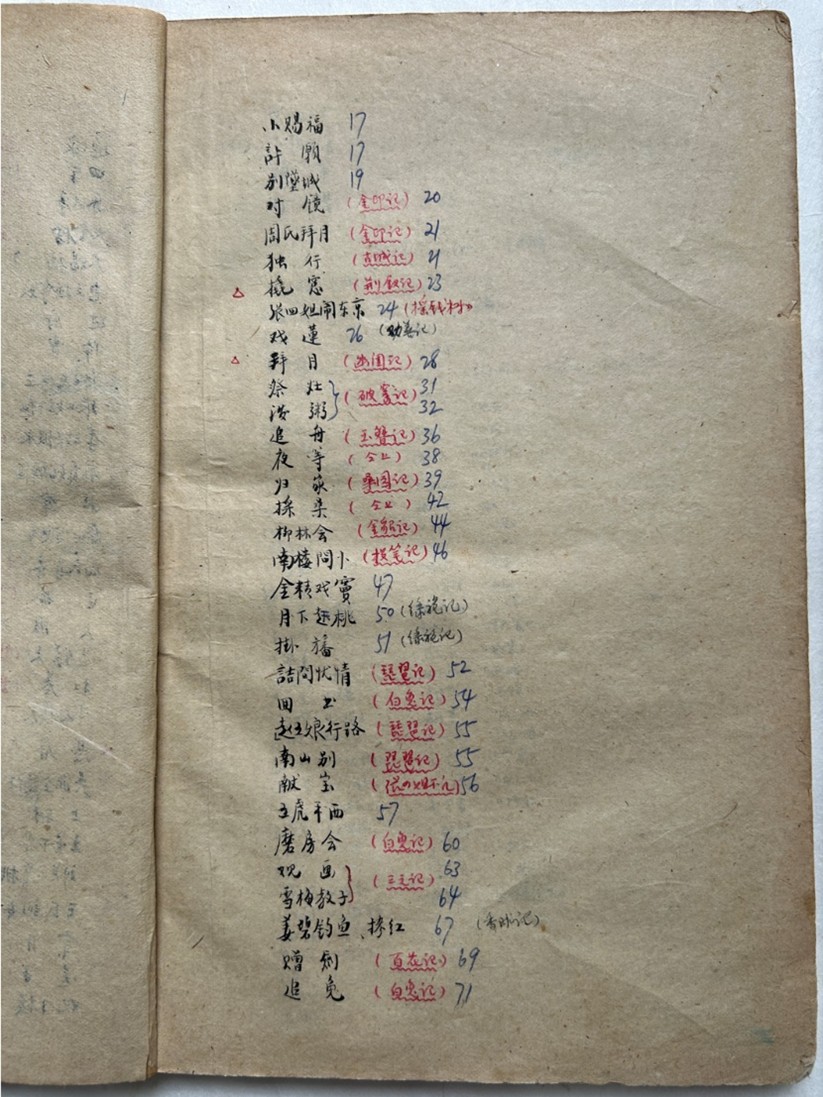 小赐福 17
許願 17
别 城 19
对镜 (金印记) 20
周氏拜月 (金印记) 21
独行 (古城记) 21
△ 撬窓 (荆釵记) 23
張四姐闹东京 24 (摇钱树)
戏蓮 26
△ 拜月 (幽闺记) 28
祭灶 (破窰记) 31
泼粥 32
追舟 (玉簪记) 36
夜等 (仝上) 38
归家 (桑园记) 39
採桑 (仝上) 42
柳林会 (金貂记) 44
南楼問卜 (投笔记) 46
金精戏寳 47
月下赶桃 50
掛旛 51
詰問忧情 (琵琶记) 52
回书 (白兔记) 54
赵五娘行路 (琵琶记) 55
南山别 (琵琶记) 55
献宝 (張四姐下凡) 56
五虎平西 57
磨房会 (白兔记) 60
观画 (三元记) 63
雪梅教子 64
姜碧钓鱼、捧红 67
赠剑 (百花记) 69
追兔 (白兔记) 71